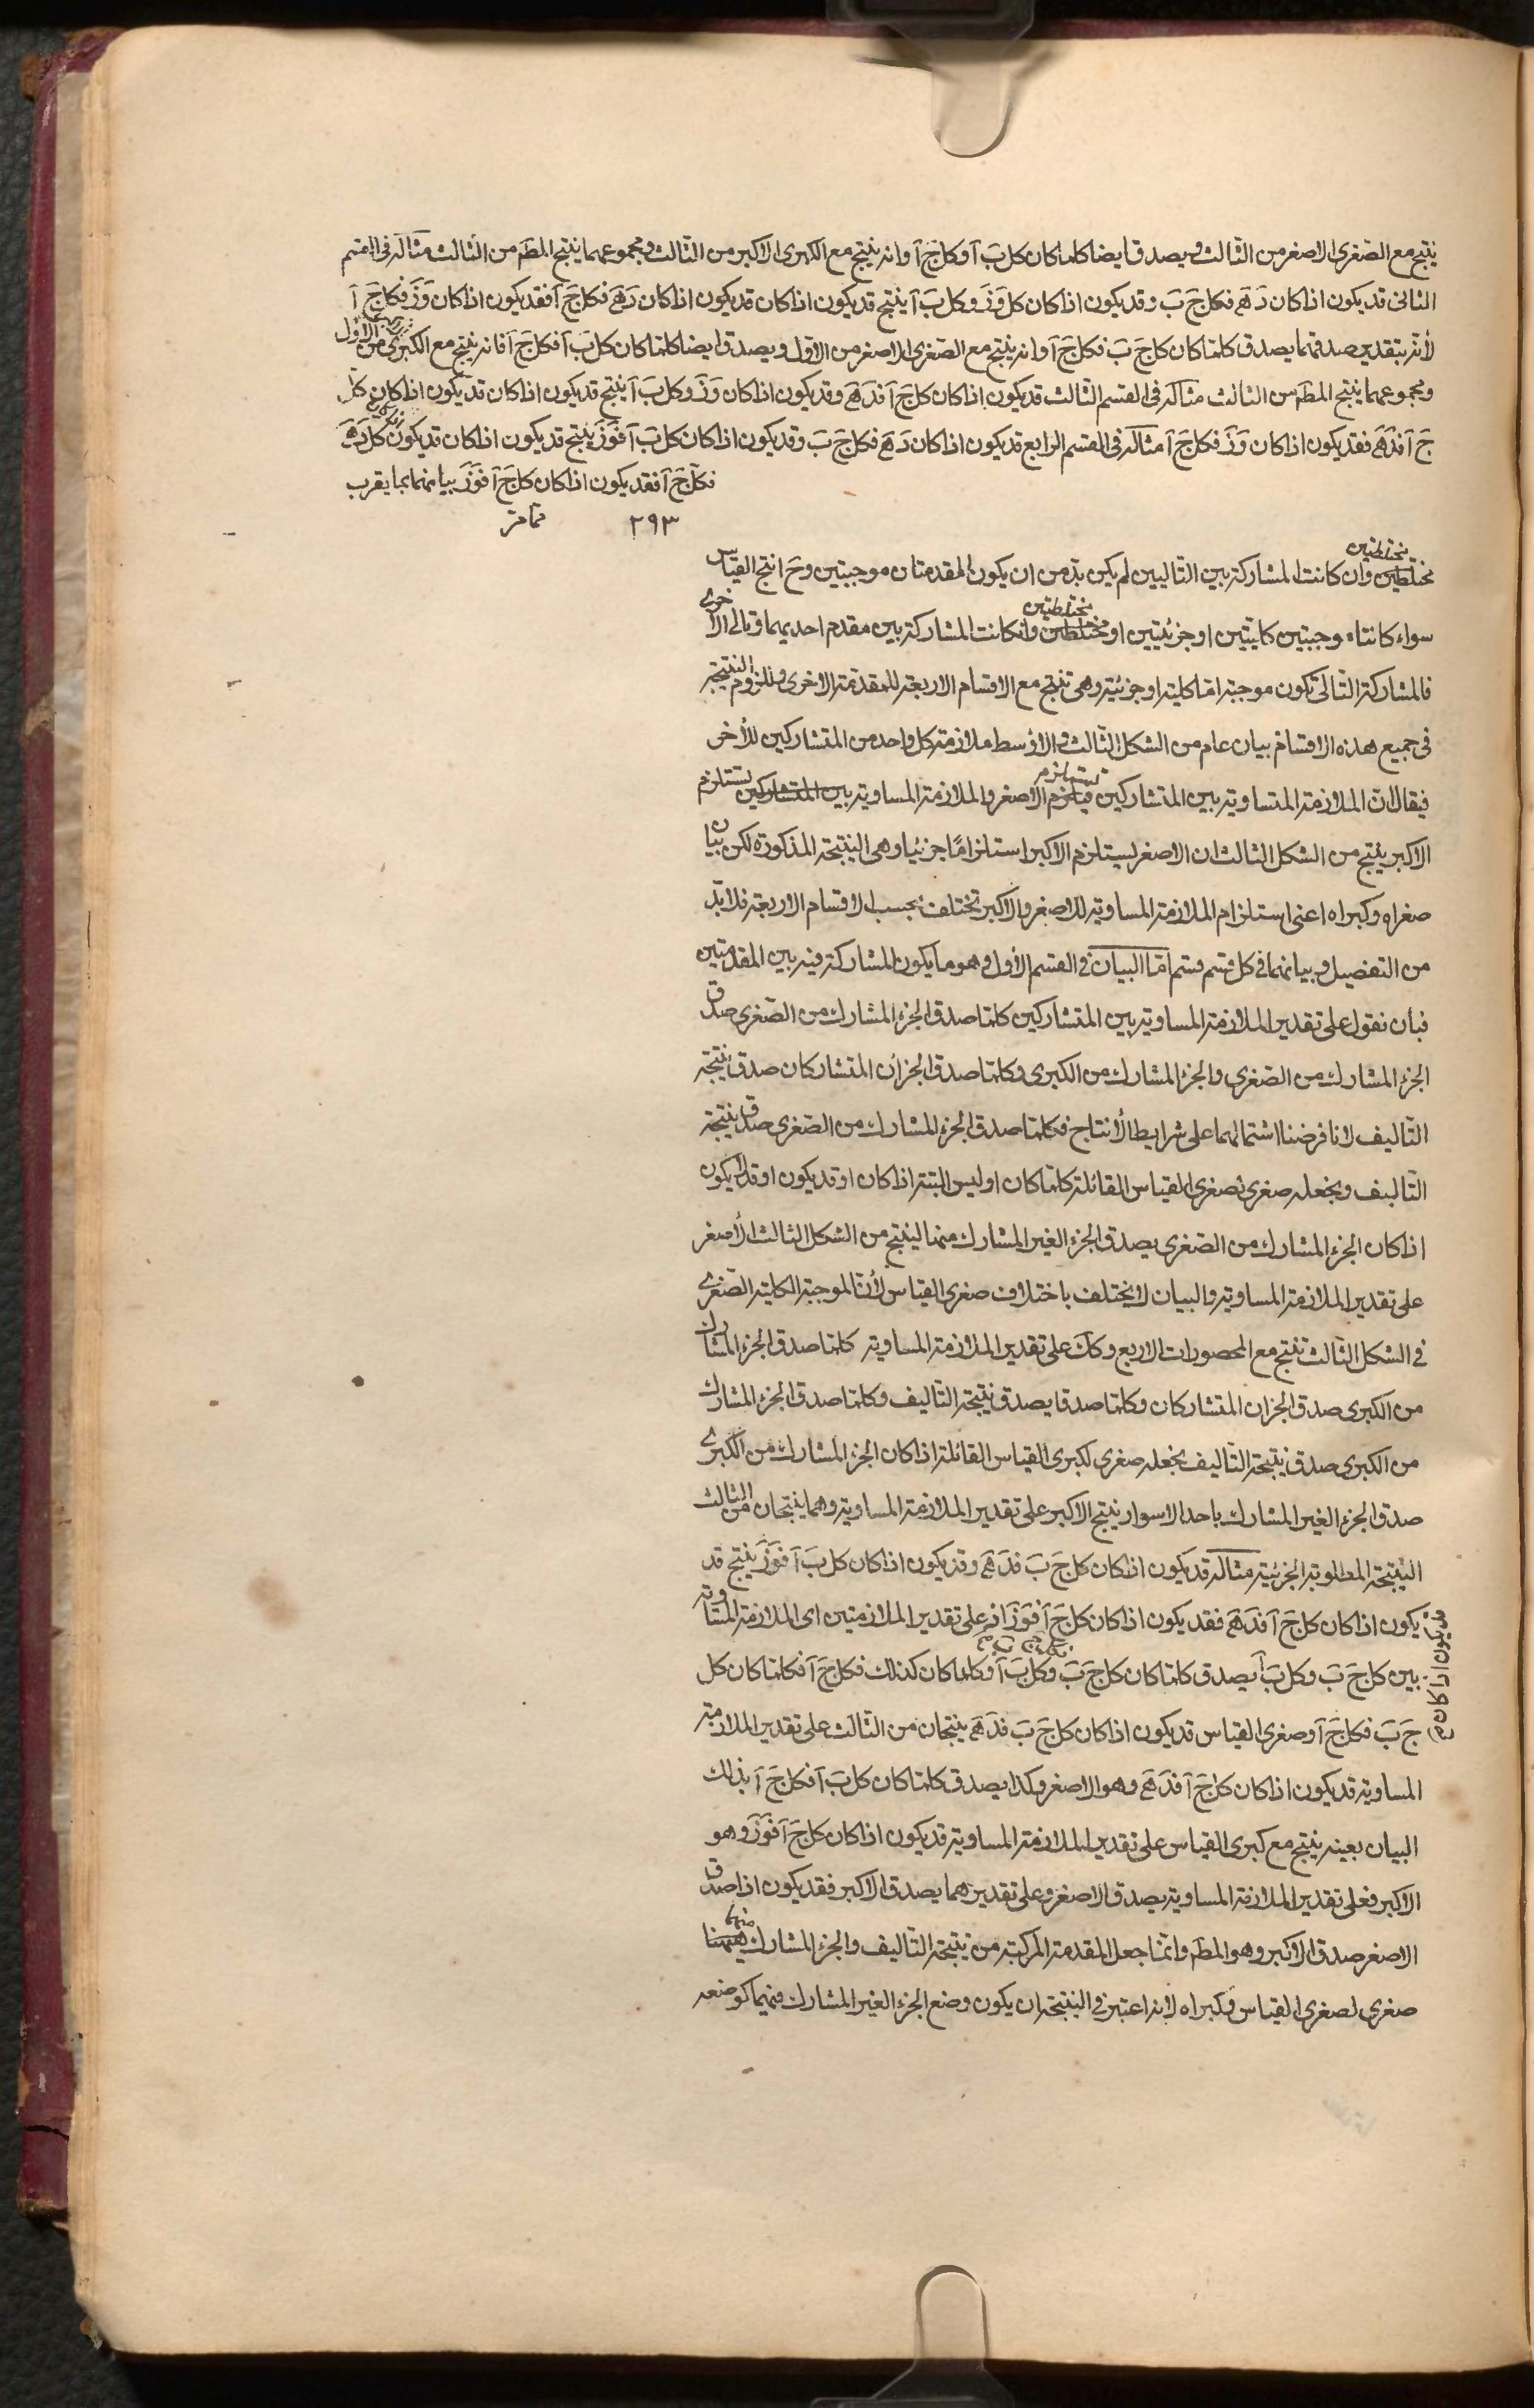 ينتج مع الصّغرى الاصغر من الثّالث ويصدق ايضا كلما كان كل بَ آ وكل جَ آ وانه ينتج مع الكبرى الاكبر من الثالث ومجموعهما ينتج المط من الثّالث مثاله فى القسم
الثانى قد يكون اذا كان دَ هَ فكل جَ بَ وقد يكون اذا كان كل وَ زَ وكل بَ آ ينتج قد يكون اذا كان قد يكون اذا كان دَ هَ فكل جَ آ فقد يكون اذا كان وَ زَ فكل جَ آ
لأنه بتقدير صدقهما يصدق كلما كان كل جَ بَ فكل جَ آ وانه ينتج مع الصّغرى الاصغر من الاوّل ويصدق ايضا كلما كان كل بَ آ فكل جَ آ فانه ينتج مع الكبرى من الاوّل
ومجموعهما ينتج المط من الثالث مثاله فى القسم الثّالث قد يكون اذا كان كل جَ آ فدَ هَ وقد يكون اذا كان وَ زَ وكل بَ آ ينتج قد يكون اذا كان قد يكون اذا كان كل
جَ آ فدَ هَ فقد يكون اذا كان وَ زَ فكل جَ آ مثاله فى القسم الرابع قد يكون اذا كان دَ هَ فكل جَ بَ وقد يكون اذا كان كل بَ آ فوَ زَ ينتج قد يكون اذا كان قد يكون كل دَ هَ
فكل جَ آ فقد يكون اذا كان كل جَ آ فوَ زَ بيانهما بما يقرب
٢٩٣
مختلطين
مختلطين وان كانت المشاركة بين التاليين لم يكن بدّ من ان يكون المقدمتان موجبتين وح انتج القياس
مختلطين
سواء كانتا موجبتين كليتين او جزئيتين او مختلطين وان كانت المشاركة بين مقدم احديهما وتالى الاخرى
فالمشاركة التّالى تكون موجبة امّا كلية او جزئية وهى تنتج مع الاقسام الاربعة للمقدمة الاخرى وللزوم النتيجة
فى جميع هذه الاقسام بيان عام من الشكل الثّالث والاوسط ملازمة كل واحد من المتشاركين للأخر
تستلزم
فيقال انّ الملازمة المتساوية بين المتشاركين الاصغر والملازمة المساوية بين المتشاركين تستلزم
الاكبر ينتج من الشكل الثالث ان الاصغر يستلزم الاكبر استلزامًا جزئيا وهى النتيجة المذكورة لكن بيان
صغراه وكبراه اعنى استلزام الملازمة المساوية للاصغر والاكبر تختلف بحسب الاقسام الاربعة فلا بدّ
من التفصيل وبيانهما فى كل قسم قسم امّا البيان فى القسم الأول وهو ما يكون المشاركة فيه بين المقدمتين
فبأن نقول على تقدير الملازمة المساوية بين المتشاركين كلما صدق الجزء المشارك من الصّغرى صدق
الجزء المشارك من الصّغرى والجزء المشارك من الكبرى وكلما صدق الجزأن المتشاركان صدق نتيجة
التّاليف لانا فرضنا اشتمالهما على شرايط الأنتاج فكلما صدق الجزء المشارك من الصّغرى صدق نتيجة
التّاليف ونجعله صغرى لصغرى القياس القائلة كلما كان او ليس البتة اذا كان او قد يكون او قد لا يكون
اذا كان الجزء المشارك من الصّغرى يصدق الجزء الغير المشارك منها لينتج من الشكل الثالث الأصغر
على تقدير الملازمة المساوية والبيان لا يختلف باختلاف صغرى القياس لأنّ الموجبة الكلية الصّغرى
فى الشكل الثّالث تنتج مع المحصورات الاربع وكك على تقدير الملازمة المساوية كلما صدق الجزء المشارك
من الكبرى صدق الجزان المتشاركان وكلما صدقا يصدق نتيجة التّاليف وكلما صدق الجزء المشارك
من الكبرى صدق نتيجة التّاليف نجعله صغرى لكبرى القياس القائلة اذا كان الجزء المشارك من الكبرى
صدق الجزء الغير المشارك باحد الاسوار ينتج الاكبر على تقدير الملازمة المساوية وهما ينتجان من الثالث
النّتيجة المطلوبة الجزئية مثاله قد يكون اذا كان كل جَ بَ فدَ هَ وقد يكون اذا كان كل بَ آ فوَ زَ ينتج قد
يكون اذا كان كل جَ آ فدَ هَ فقد يكون اذا كان كل جَ آ فوَ زَ اذ على تقدير الملازمتين اى الملازمة المتساوية
بين كل جَ بَ وكل بَ آ يصدق كلما كان كل جَ بَ وكل بَ آ وكلما كان كذلك فكل جَ آ فكلما كان كل
جَ بَ فكل جَ آ وصغرى القياس قد يكون اذا كان كل جَ بَ فدَ هَ ينتجان من الثّالث على تقدير الملازمة
المساوية قد يكون اذا كان كل جَ آ فدَ هَ وهو الاصغر وكذا يصدق كلما كان كل بَ آ فكل جَ آ بذلك
البيان بعينه ينتج مع كبرى القياس على تقدير الملازمة المساوية قد يكون اذا كان كل جَ آ فوَ زَ وهو
الاكبر فعلى تقدير الملازمة المساوية يصدق الاصغر وعلى تقديرهما يصدق الاكبر فقد يكون اذا صدق
الاصغر صدق الاكبر وهو المط وانّما جعل المقدمة المركبة من نتيجة التّاليف والجزء المشارك منهما
صغرى لصغرى القياس وكبراه لأنه اعتبر فى النتيجة ان يكون وضع الجزء الغير المشارك فيهما كوضعه